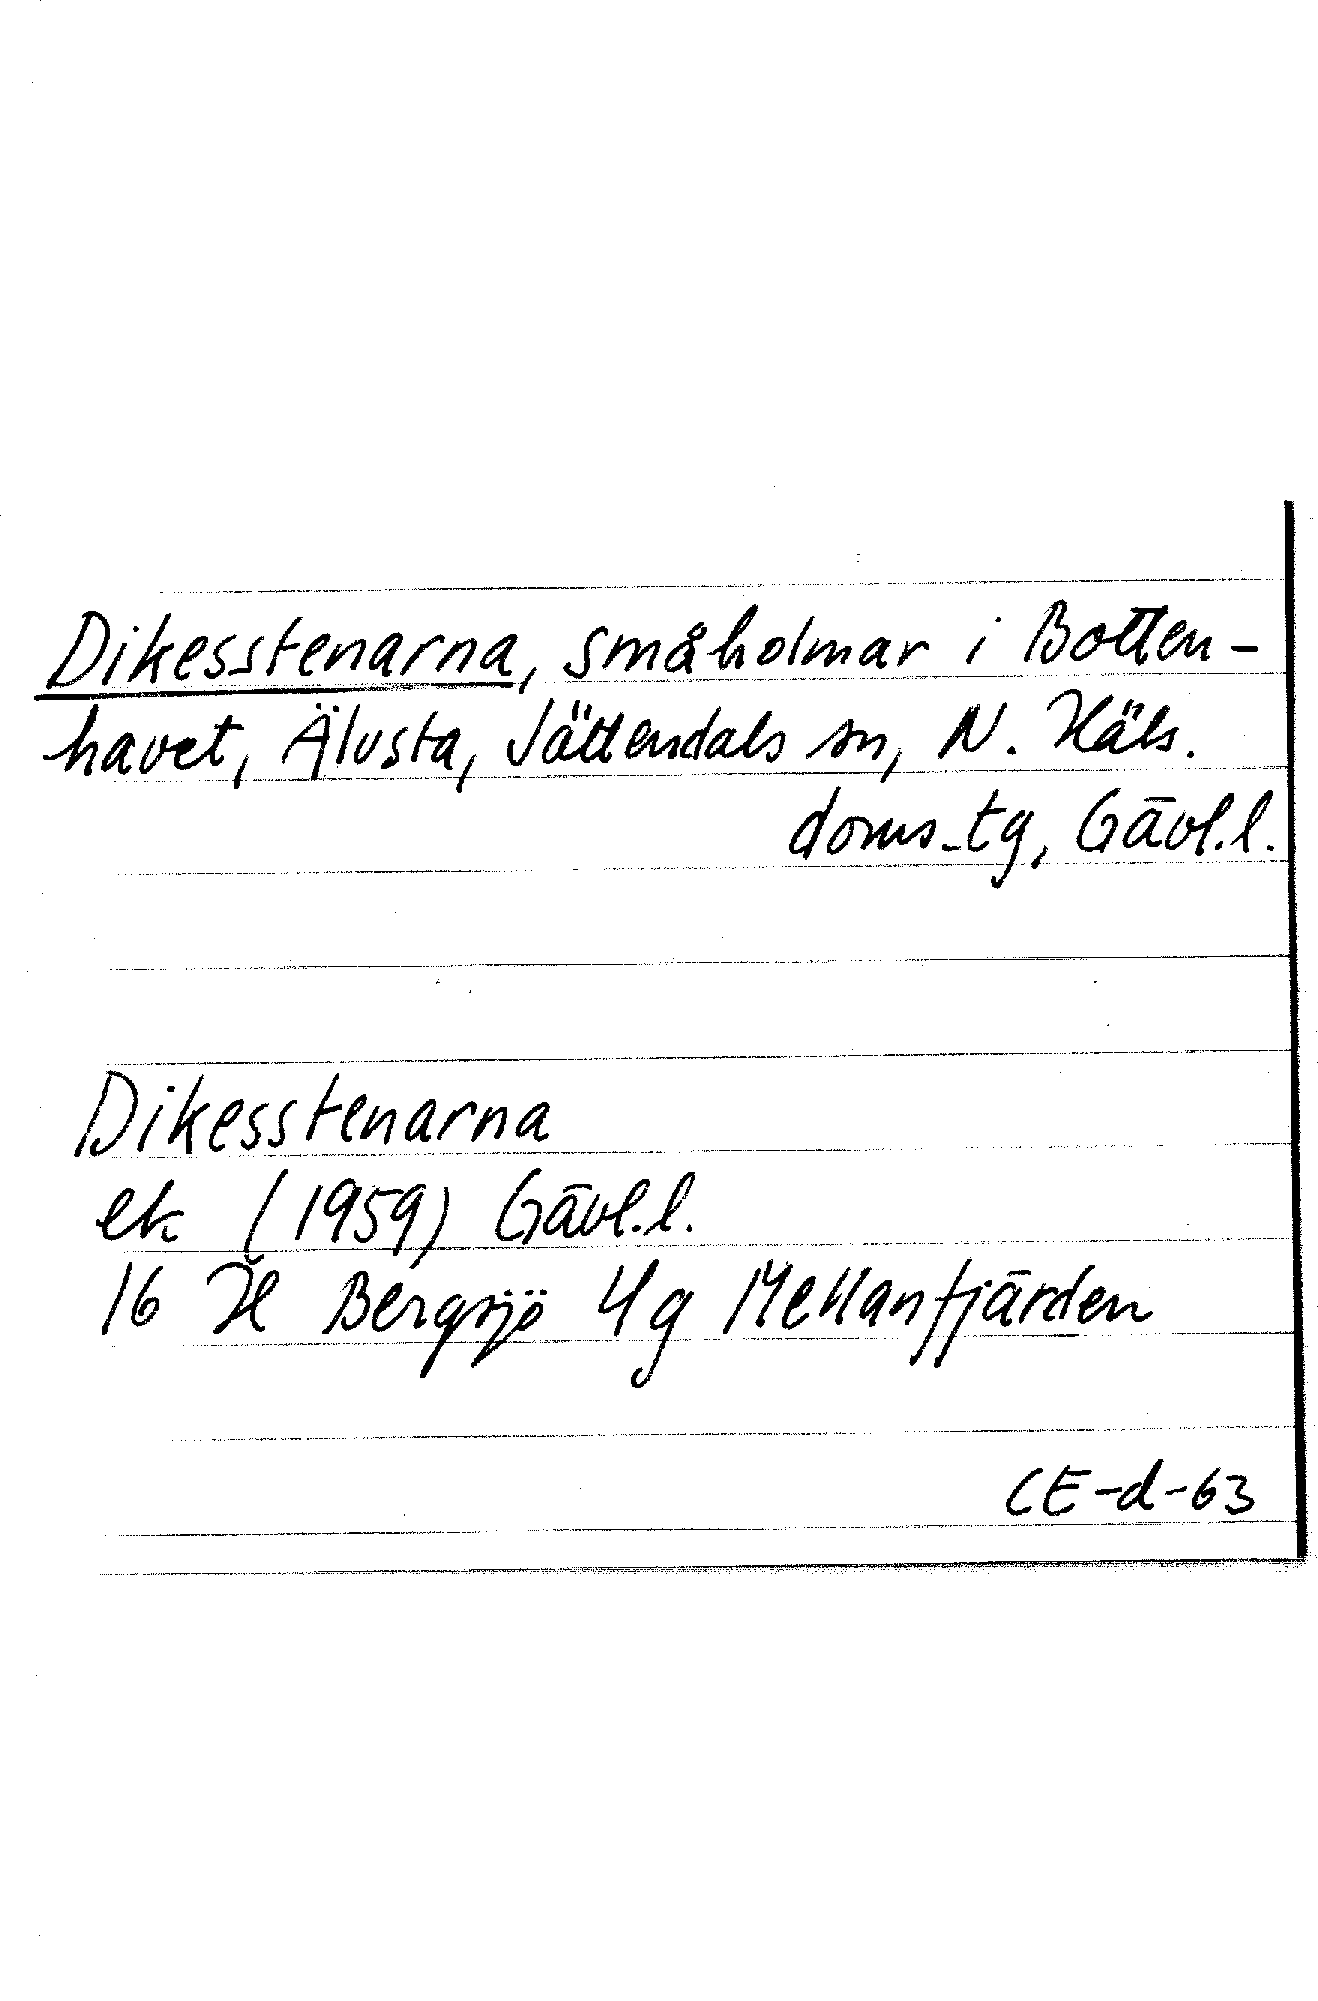 Dikesstenarna, småholmar i Botten-
havet, Älvsta, Jättendals sn, N. Häls.
doms.tg, Gävl.l.
Dikesstenarna
ek (1959) Gävl.l.
16 H Bergsjö 4g Mellanfjärden
CE-d-63